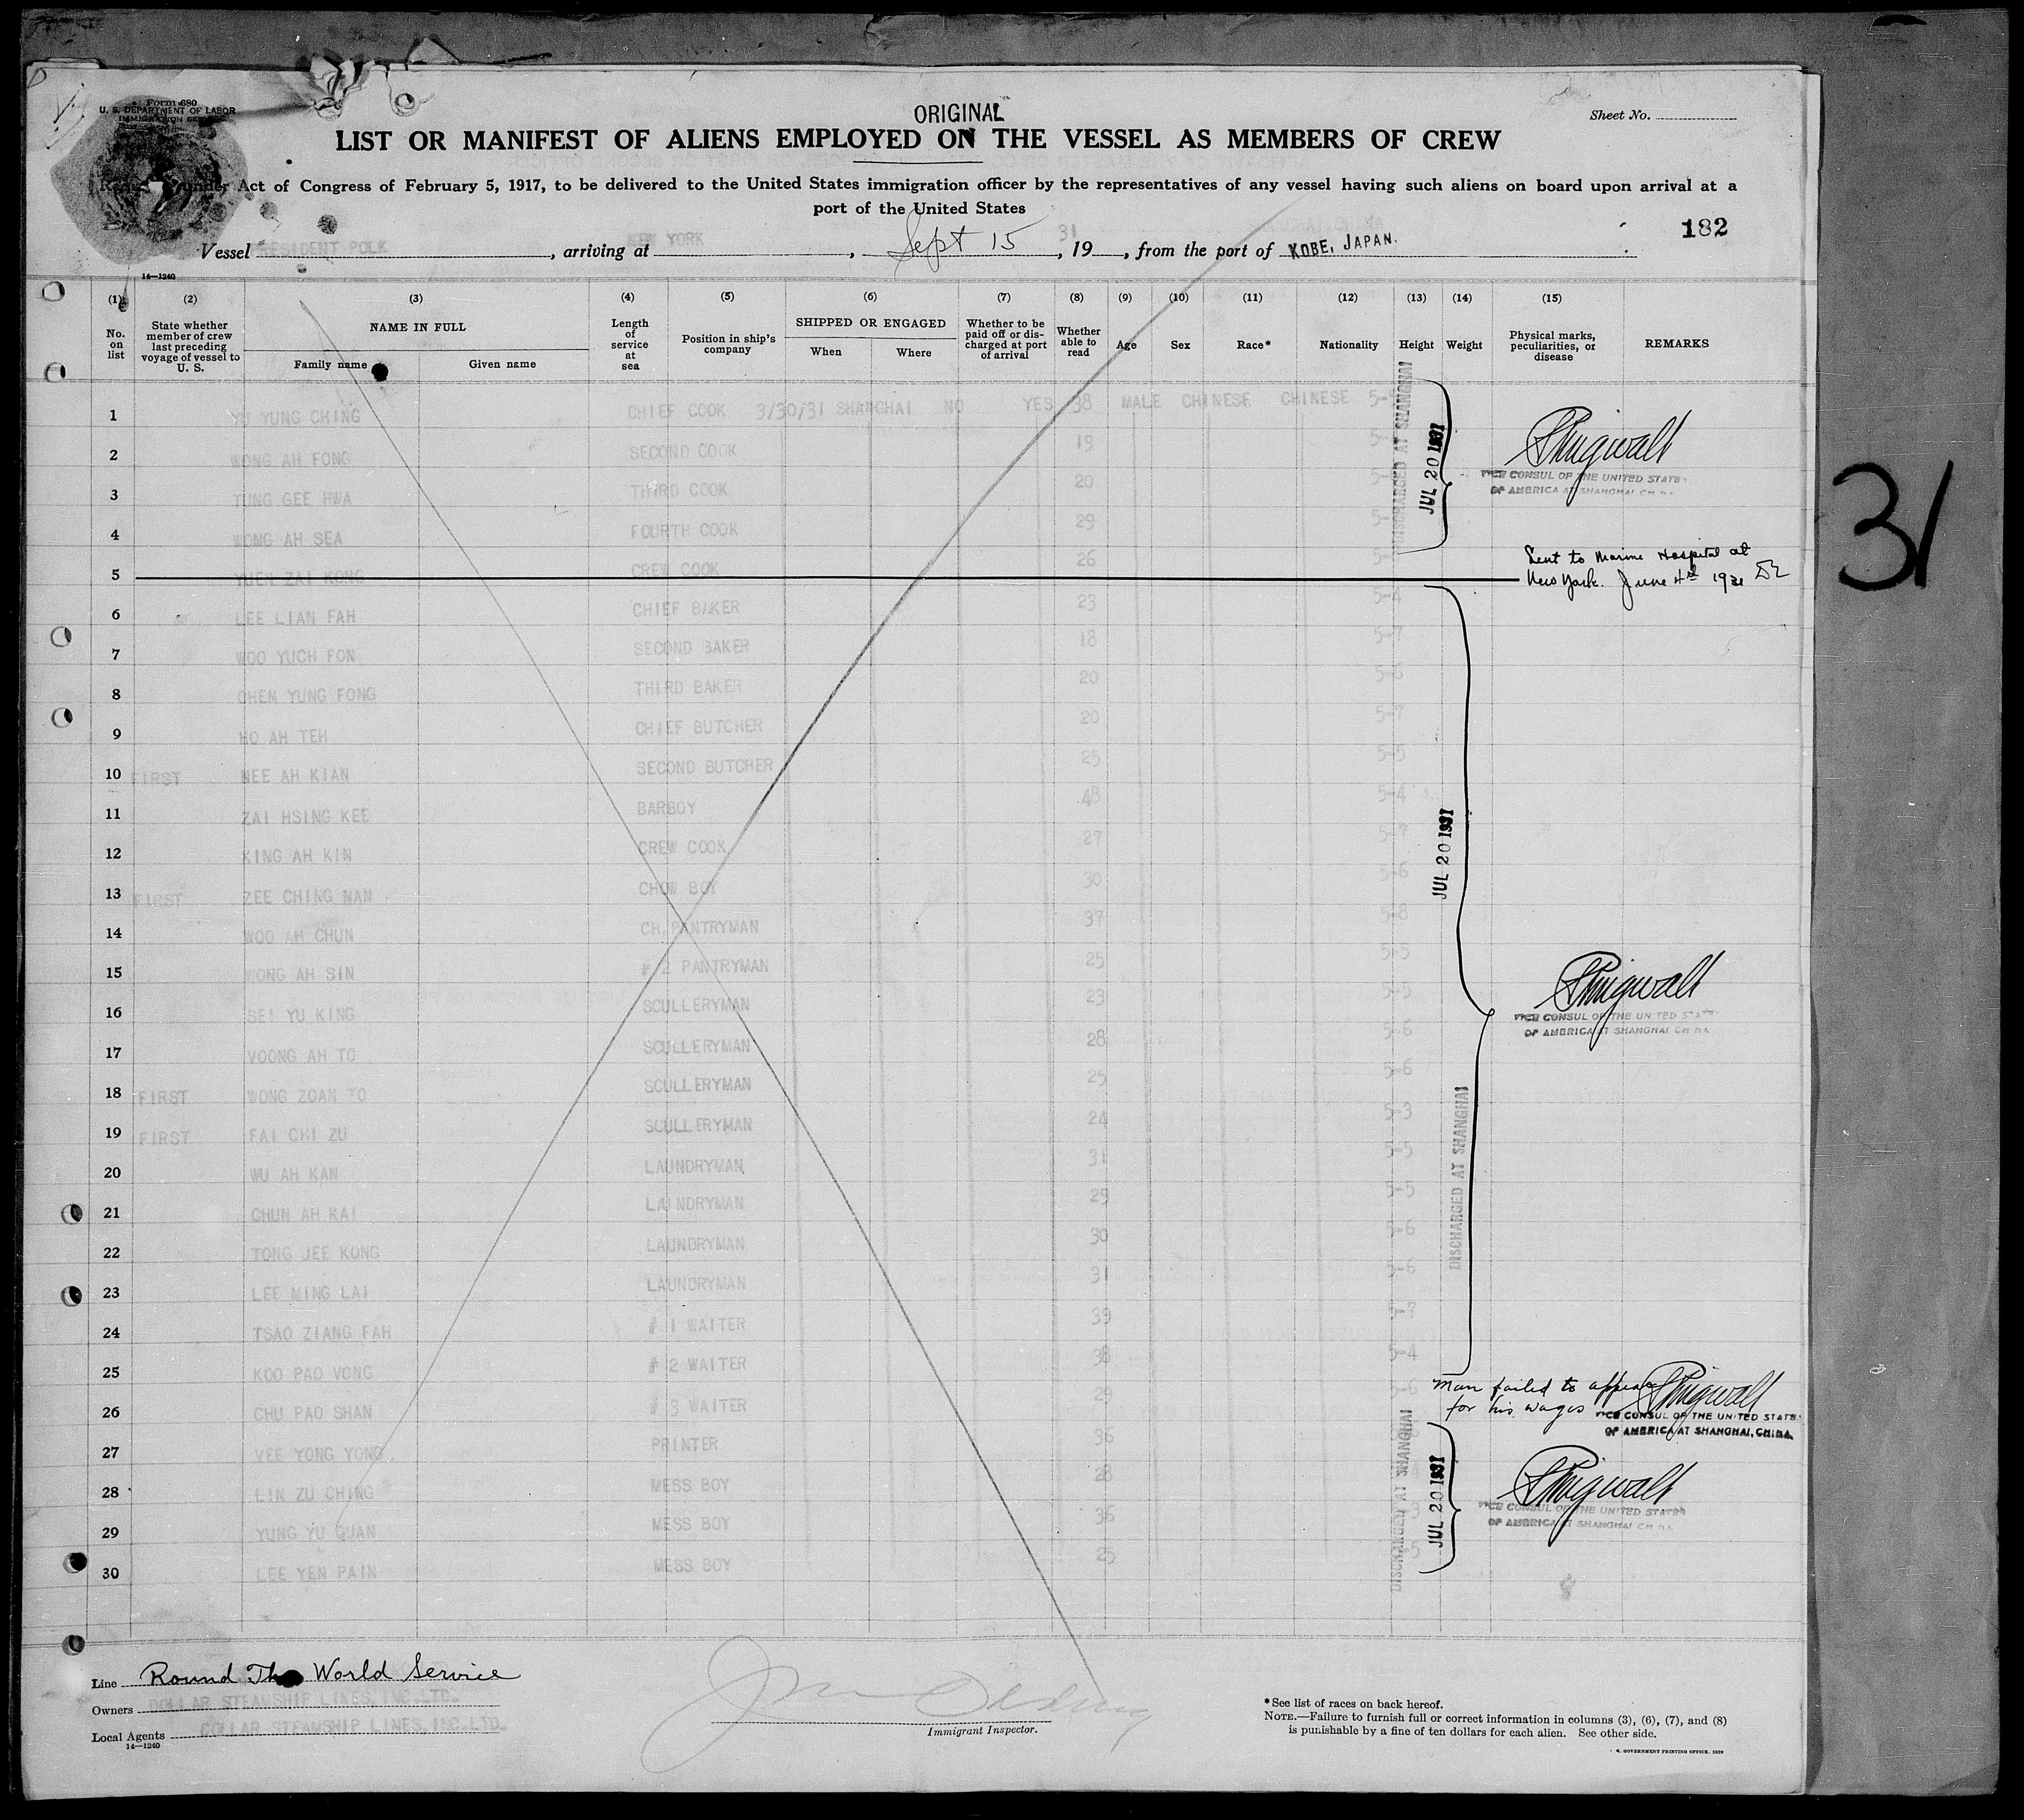 Form 680
U. S. DEPARTMENT OF LABOR
IMMIGRATION SERVICE
ORIGINAL
Sheet No.
LIST OR MANIFEST OF ALIENS EMPLOYED ON THE VESSEL AS MEMBERS OF CREW
under Act of Congress of February 5, 1917, to be delivered to the United States immigration officer by the representatives of any vessel having such aliens on board upon arrival at a
port of the United States
182
Vessel PRESIDENT POLK, arriving at NEW YORK, Sept 15, 1931, from the port of KOBE, JAPAN.
14—1240
(1) (2) (3) (4) (5) (6) (7) (8) (9) (10) (11) (12) (13) (14) (15)
No. on list
State whether member of crew last preceding voyage of vessel to U. S.
NAME IN FULL
Family name
Given name
Length of service at sea
Position in ship's company
SHIPPED OR ENGAGED
When
Where
Whether to be paid off or discharged at port of arrival
Whether able to read
Age
Sex
Race*
Nationality
Height
Weight
Physical marks, peculiarities, or disease
REMARKS
1 YU YUNG CHING CHIEF COOK 3/30/31 SHANGHAI NO YES 38 MALE CHINESE CHINESE
2 WONG AH FONG SECOND COOK 19
3 TUNG GEE HWA THIRD COOK 20
4 WONG AH SEA FOURTH COOK 29
5 YUEN ZAI KONG CREW COOK 26
6 LEE LIAN FAH CHIEF BAKER 23 5-4
7 WOO YUCH FON SECOND BAKER 18 5-7
8 CHEN YUNG FONG THIRD BAKER 20 5-6
9 HO AH TEH CHIEF BUTCHER 20 5-7
10 FIRST NEE AH KIAN SECOND BUTCHER 25 5-5
11 ZAI HSING KEE BARBOY 48 5-4
12 KING AH KIN CREW COOK 27 5-7
13 FIRST ZEE CHING NAN CHOW BOY 30 5-6
14 WOO AH CHUN CH. PANTRYMAN 37 5-8
15 WONG AH SIN # 2 PANTRYMAN 25 5-5
16 SEI YU KING SCULLERYMAN 23 5-5
17 VOONG AH TO SCULLERYMAN 28 5-6
18 FIRST WONG ZOAN TO SCULLERYMAN 25 5-6
19 FIRST FAI CHI ZU SCULLERYMAN 24 5-3
20 WU AH KAN LAUNDRYMAN 31 5-5
21 CHUN AH KAI LAUNDRYMAN 29 5-5
22 TONG JEE KONG LAUNDRYMAN 30 5-6
23 LEE MING LAI LAUNDRYMAN 31 5-6
24 TSAO ZIANG FAH # 1 WAITER 39 5-7
25 KOO PAO VONG # 2 WAITER 38 5-4
26 CHU PAO SHAN # 3 WAITER 29 5-6
27 VEE YONG YONG PRINTER 36
28 LIN ZU CHING MESS BOY 28
29 YUNG YU QUAN MESS BOY 36
30 LEE YEN PAIN MESS BOY 25
DISCHARGED AT SHANGHAI
JUL 20 1931
VICE CONSUL OF THE UNITED STATES
OF AMERICA AT SHANGHAI CHINA
Sent to Marine Hospital at
New York. June 4th 1931
JUL 20 1931
DISCHARGED AT SHANGHAI
VICE CONSUL OF THE UNITED STATES
OF AMERICA AT SHANGHAI CHINA
Man failed to appear
for his wages
VICE CONSUL OF THE UNITED STATES
OF AMERICA AT SHANGHAI, CHINA
DISCHARGED AT SHANGHAI
JUL 20 1931
VICE CONSUL OF THE UNITED STATES
OF AMERICA AT SHANGHAI CHINA
31
Line Round The World Service
Owners DOLLAR STEAMSHIP LINES, INC. LTD.
Local Agents DOLLAR STEAMSHIP LINES, INC. LTD.
14—1240
Immigrant Inspector.
*See list of races on back hereof.
NOTE.—Failure to furnish full or correct information in columns (3), (6), (7), and (8)
is punishable by a fine of ten dollars for each alien. See other side.
GOVERNMENT PRINTING OFFICE